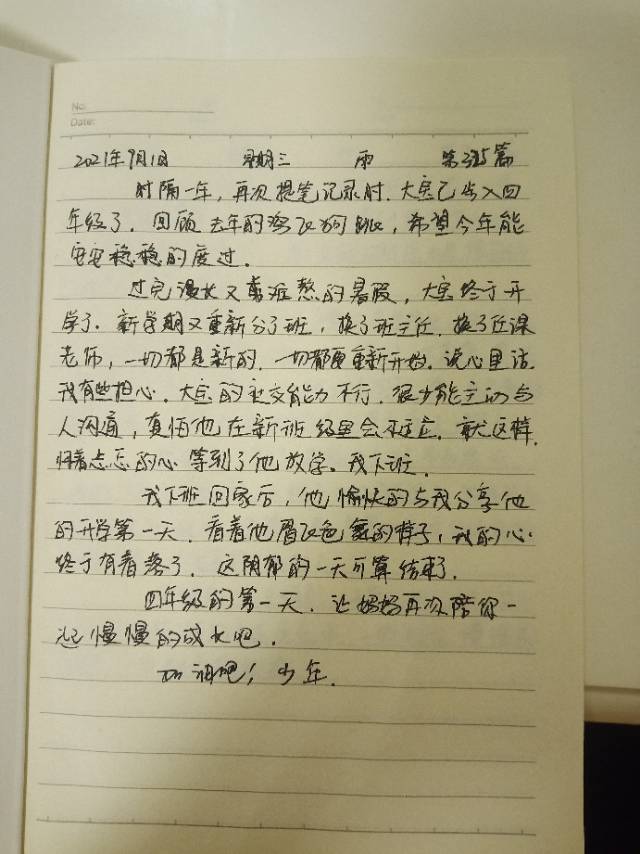 No.
Date:
2021年9月1日 星期三 雨 第335篇
时隔一年，再次提笔记录时，大宝已步入四
年级了。回顾去年的鸡飞狗跳，希望今年能
安安稳稳的度过。
过完漫长又难熬的暑假，大宝终于开
学了。新学期又重新分了班，换了班主任，换了任课
老师，一切都是新的，一切都要重新开始。说心里话
我有些担心，大宝的社交能力不行，很少能主动与
人沟通，真怕他在新班级里会不适应。就这样，
怀着忐忑的心等到了他放学，我下班。
我下班回家后，他愉快的与我分享他
的开学第一天，看着他眉飞色舞的样子，我的心
终于有着落了，这阴郁的一天可算结束了。
四年级的第一天，让妈妈再次陪你一
起慢慢的成长吧。
加油吧！少年。